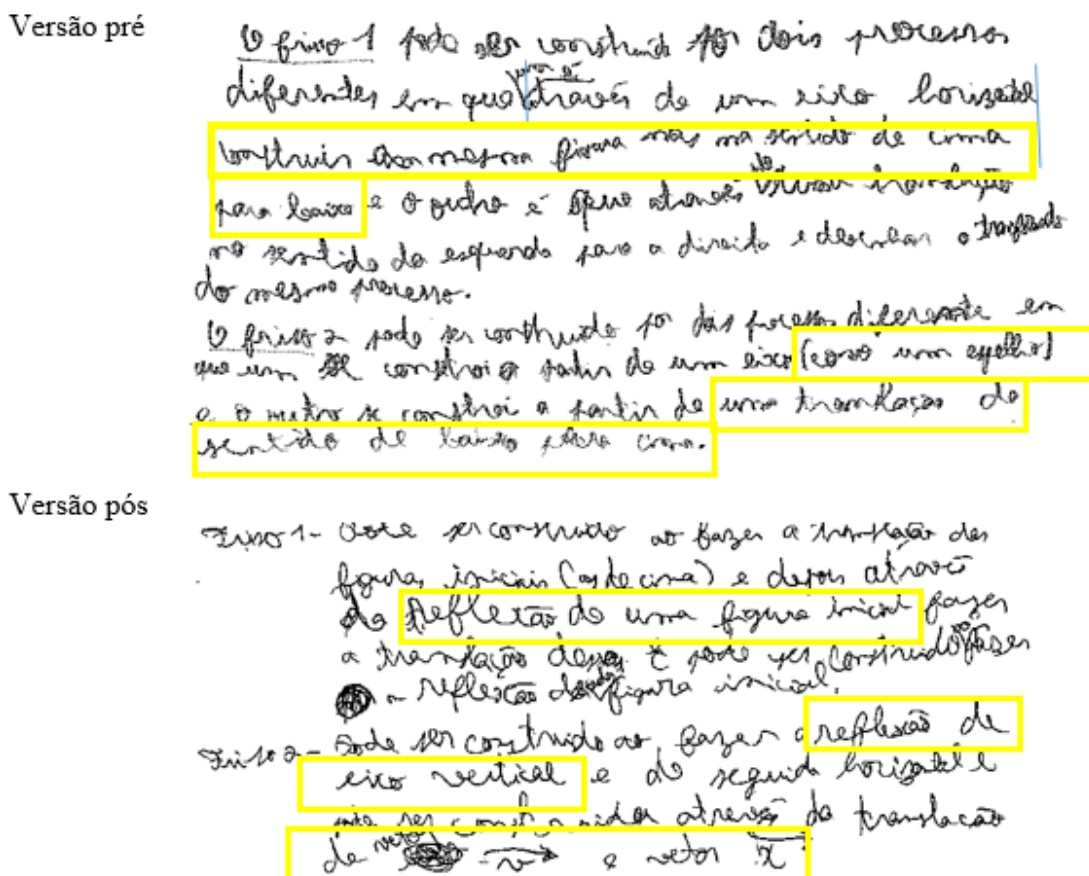 Versão pré
O friso 1 pode ser construido por dois processos
diferentes em que um é através de um eixo horizontal
construir a mesma figura mas na sentido de cima
para baixo e o outro é que através translação
no sentido da esquerda para a direita e
do mesmo processo.
O friso 2 pode ser construido por dois processos diferente em
que um se constroi a partir de um eixo (como um espelho)
e o outro se constroi a partir de uma translação do
sentido de baixo para cima.
Versão pós
Friso 1- Pode ser construido ao fazer a translação das
figuras iniciais (as de cima) e depois através
da reflexão de uma figura inicial fazer
a translação dessa. E pode ser construido ao fazer
a reflexão da figura inicial.
Friso 2- Pode ser construido ao fazer a reflexão de
eixo vertical e de seguida horizontal e
pode ser através da translação
de vetor v e vetor x